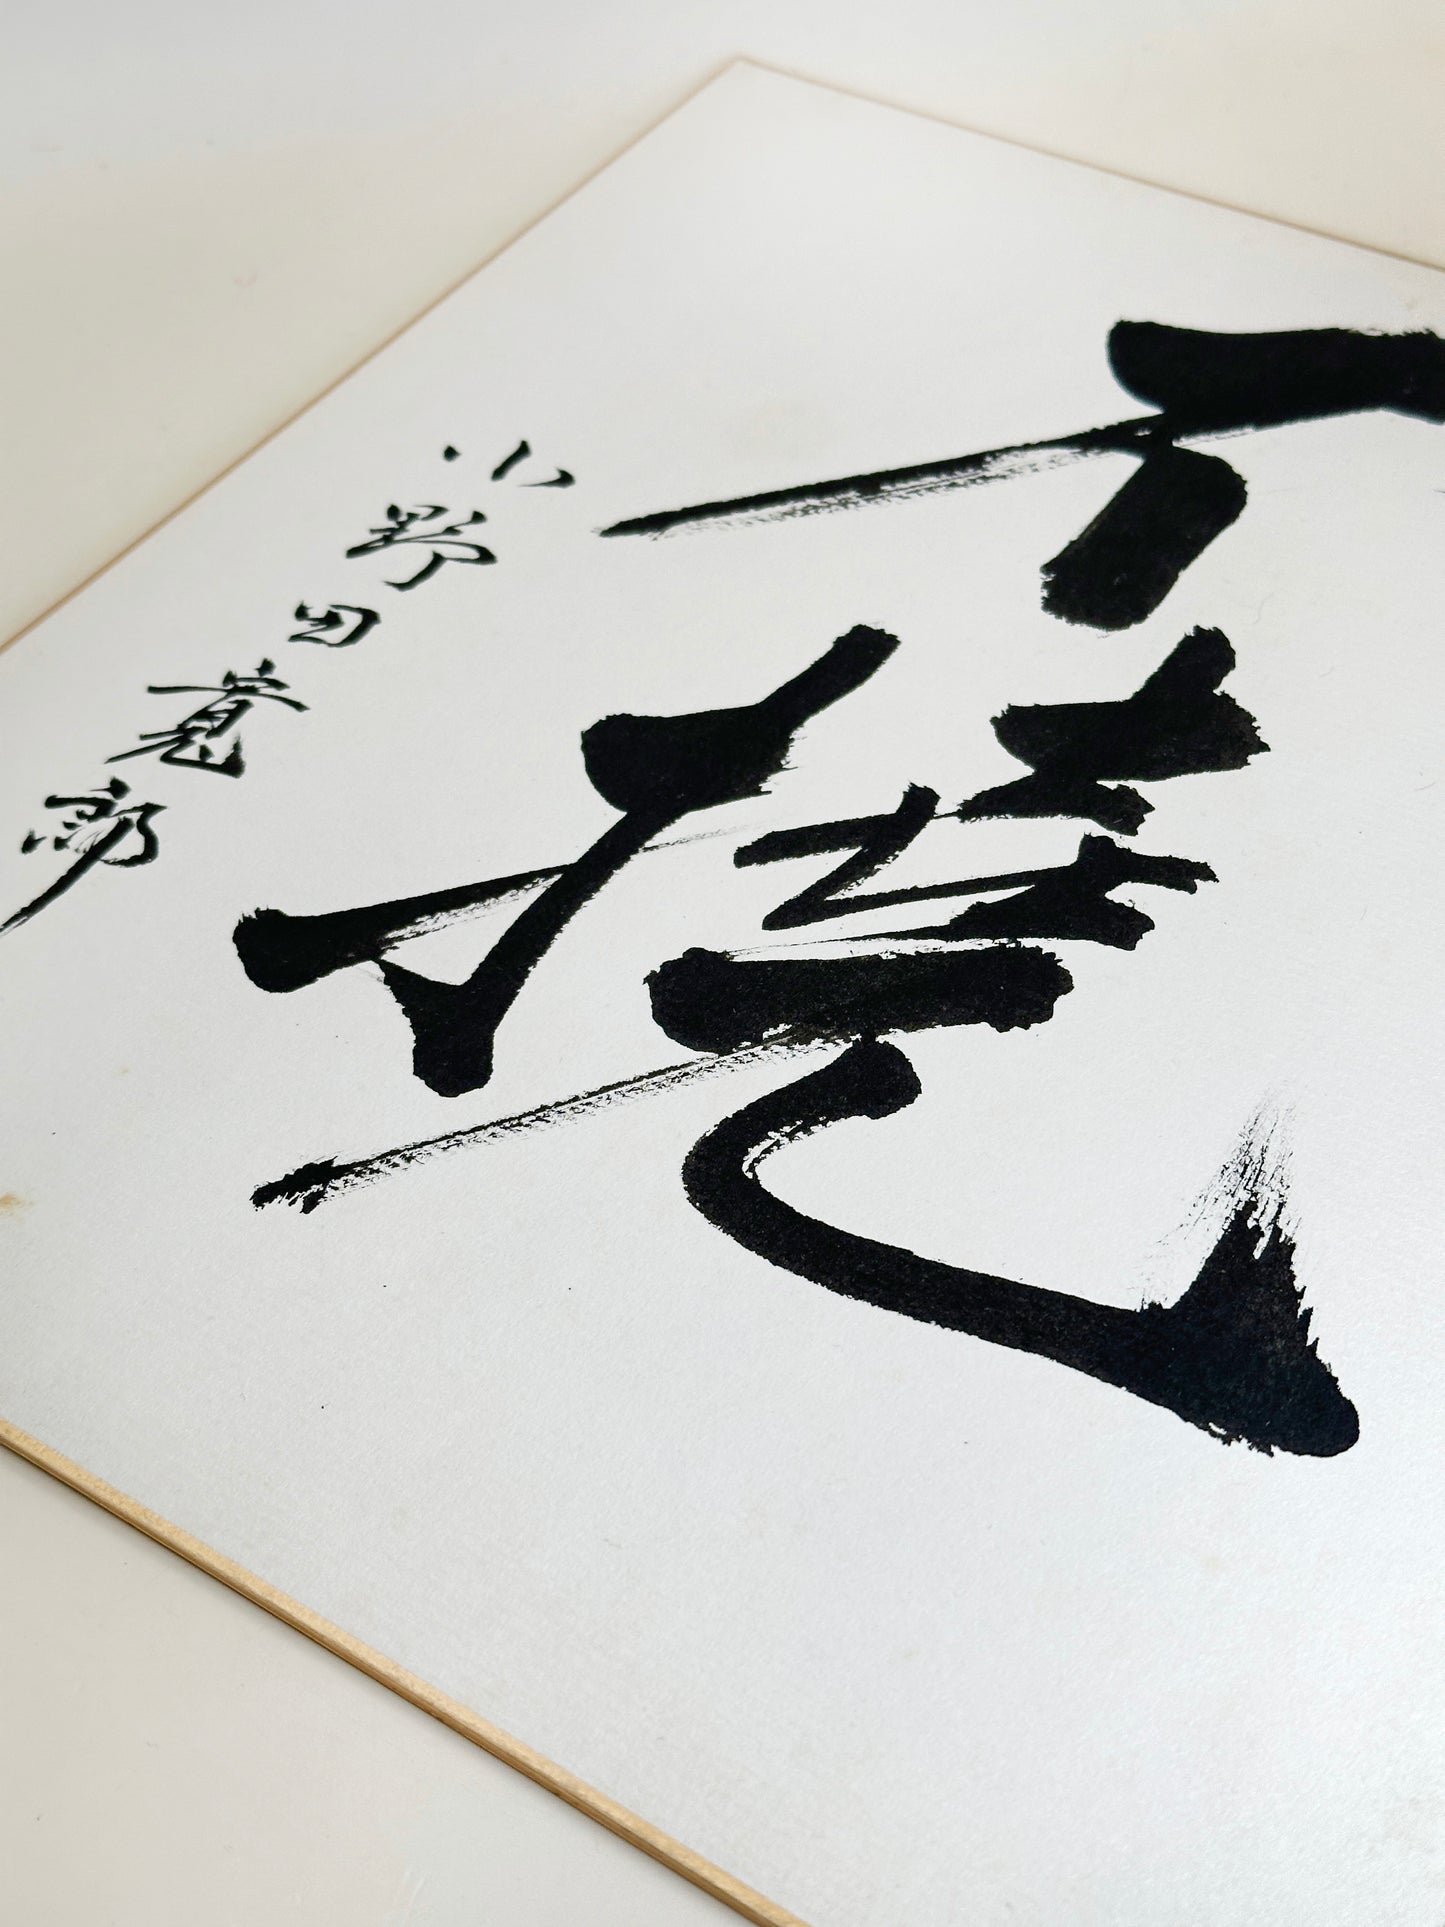 不撓
小野田寛郎